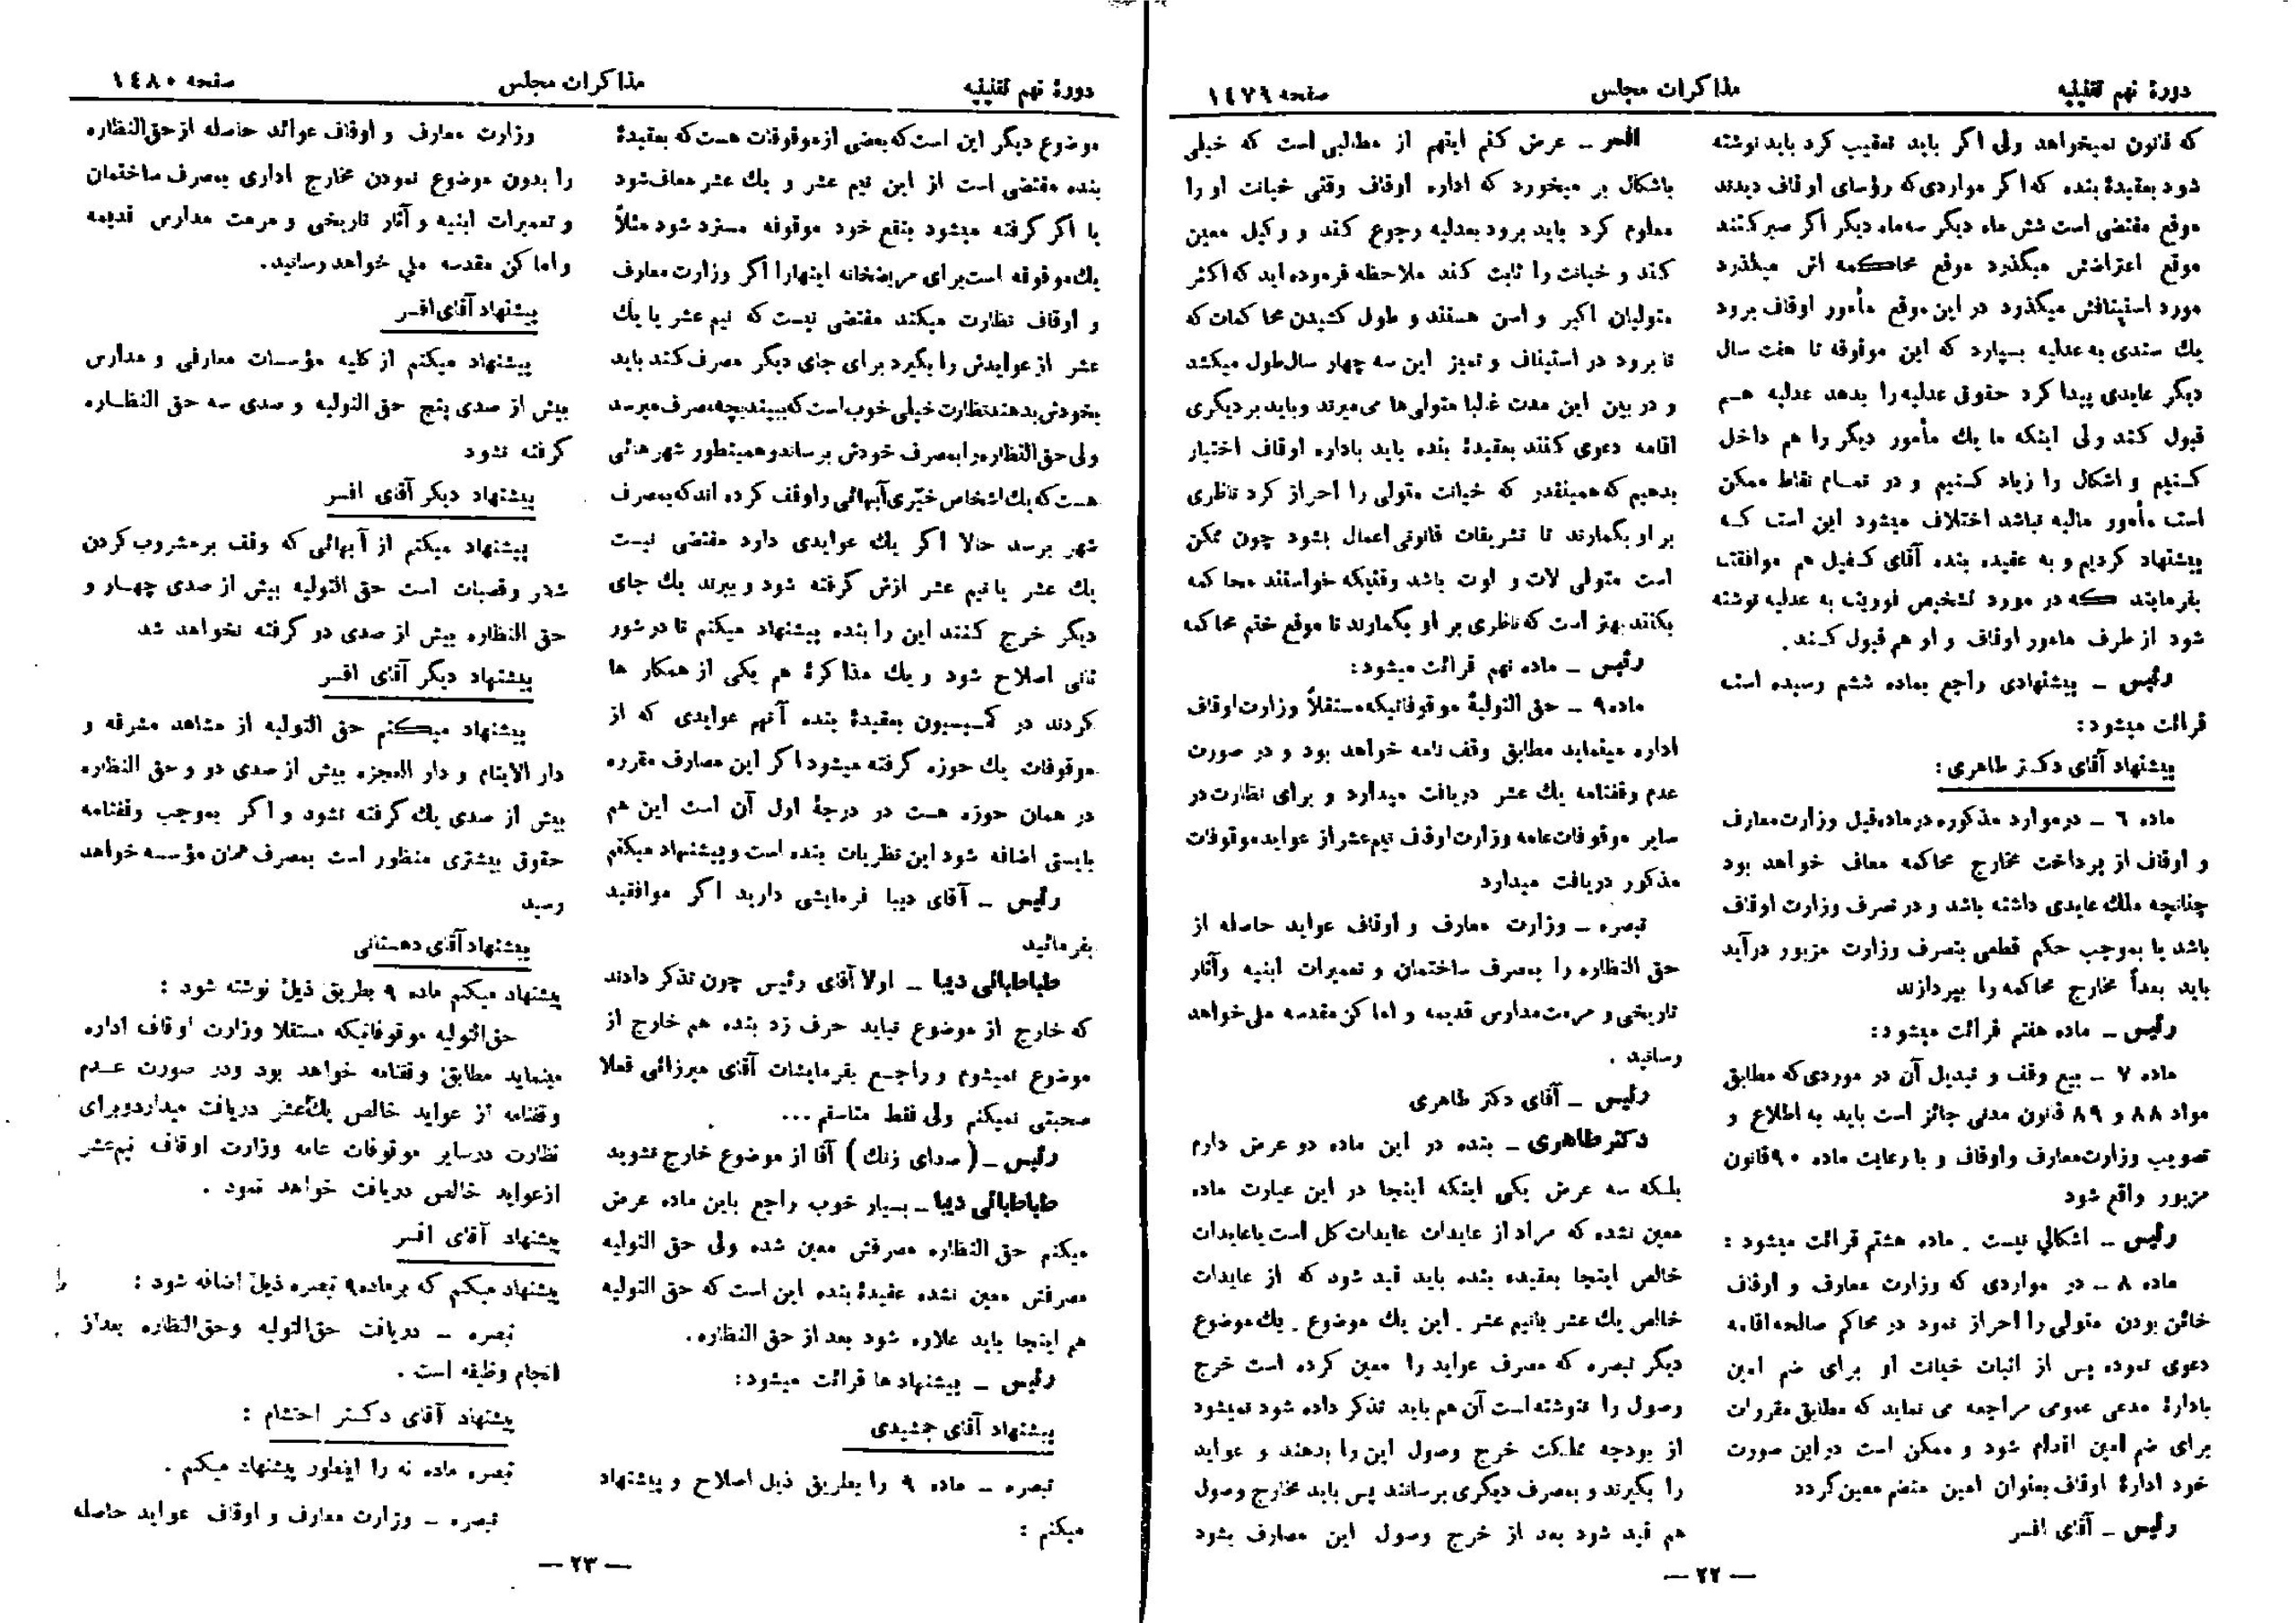 دورهٔ نهم تقنینیه
مذاکرات مجلس
صفحه ۱٤۷۹
که قانون نمیخواهد ولی اگر باید تعقیب کرد باید نوشته
شود بعقیدهٔ بنده که اگر مواردی که رؤسای اوقاف دیدند
موقع مقتضی است شش ماه دیگر سه ماه دیگر اگر صبر کنند
موقع اعتراضش میگذرد موقع محاکمه اش میگذرد
مورد استینافش میگذرد در این موقع مأمور اوقاف برود
یك سندی به عدلیه بسپارد که این موقوفه تا هفت سال
دیگر عایدی پیدا کرد حقوق عدلیه را بدهد عدلیه هم
قبول کند ولی اینکه ما یك مأمور دیگر را هم داخل
کنیم و اشکال را زیاد کنیم و در تمام نقاط ممکن
است مأمور مالیه نباشد اختلاف میشود این است که
پیشنهاد کردیم و به عقیده بنده آقای کفیل هم موافقت
بفرمایند که در مورد تشخیص فوریت به عدلیه نوشته
شود از طرف مامور اوقاف و او هم قبول کند.
رئیس ـ پیشنهادی راجع بماده ششم رسیده است
قرائت میشود:
پیشنهاد آقای دکتر طاهری:
ماده ٦ ـ در موارد مذکوره در ماده قبل وزارت معارف
و اوقاف از پرداخت مخارج محاکمه معاف خواهد بود
چنانچه ملك عایدی داشته باشد و در تصرف وزارت اوقاف
باشد یا بموجب حکم قطعی بتصرف وزارت مزبور درآید
باید بعداً مخارج محاکمه را بپردازند
رئیس ـ ماده هفتم قرائت میشود:
ماده ۷ ـ بیع وقف و تبدیل آن در موردی که مطابق
مواد ۸۸ و ۸۹ قانون مدنی جائز است باید به اطلاع و
تصویب وزارت معارف و اوقاف و با رعایت ماده ۹۰ قانون
مزبور واقع شود
رئیس ـ اشکالی نیست . ماده هشتم قرائت میشود :
ماده ۸ ـ در مواردی که وزارت معارف و اوقاف
خائن بودن متولی را احراز نمود در محاکم صالحه اقامه
دعوی نموده پس از اثبات خیانت او برای ضم امین
بادارهٔ مدعی عمومی مراجعه می نماید که مطابق مقررات
برای ضم امین اقدام شود و ممکن است در این صورت
خود ادارهٔ اوقاف بعنوان امین منضم معین گردد
رئیس ـ آقای افسر
افسر ـ عرض کنم اینهم از مطالبی است که خیلی
باشکال بر میخورد که اداره اوقاف وقتی خیانت او را
معلوم کرد باید برود بعدلیه رجوع کند و وکیل معین
کند و خیانت را ثابت کند ملاحظه فرموده اید که اکثر
متولیان اکبر و اسن هستند و طول کشیدن محاکمات که
تا برود در استیناف و تمیز این سه چهار سال طول میکشد
و در بین این مدت غالبا متولی ها می میرند و باید بر دیگری
اقامه دعوی کنند بعقیدهٔ بنده باید باداره اوقاف اختیار
بدهیم که همینقدر که خیانت متولی را احراز کرد ناظری
بر او بگمارند تا تشریفات قانونی اعمال بشود چون ممکن
است متولی لات و لوت باشد وقتیکه خواستند محاکمه
بکنند بهتر است که ناظری بر او بگمارند تا موقع ختم محاکمه
رئیس ـ ماده نهم قرائت میشود:
ماده ۹ ـ حق التولیهٔ موقوفاتیکه مستقلاً وزارت اوقاف
اداره مینماید مطابق وقف نامه خواهد بود و در صورت
عدم وقفنامه یك عشر دریافت میدارد و برای نظارت در
سایر موقوفات عامه وزارت اوقاف نیم عشر از عواید موقوفات
مذکور دریافت میدارد
تبصره ـ وزارت معارف و اوقاف عواید حاصله از
حق النظاره را بمصرف ساختمان و تعمیرات ابنیه و آثار
تاریخی و مرمت مدارس قدیمه و اماکن مقدسه ملی خواهد
رسانید .
رئیس ـ آقای دکتر طاهری
دکتر طاهری ـ بنده در این ماده دو عرض دارم
بلکه سه عرض یکی اینکه اینجا در این عبارت ماده
معین نشده که مراد از عایدات عایدات کل است یا عایدات
خالص اینجا بعقیده بنده باید قید شود که از عایدات
خالص یك عشر یا نیم عشر . این یك موضوع . یك موضوع
دیگر تبصره که مصرف عواید را معین کرده است خرج
وصول را ننوشته است آن هم باید تذکر داده شود نمیشود
از بودجه مملکت خرج وصول این را بدهند و عواید
را بگیرند و بمصرف دیگری برسانند پس باید مخارج وصول
هم قید شود بعد از خرج وصول این مصارف بشود
— ۲۲ —
دورهٔ نهم تقنینیه
مذاکرات مجلس
صفحه ۱٤۸۰
موضوع دیگر این است که بعضی از موقوفات هست که بعقیدهٔ
بنده مقتضی است از این نیم عشر و یك عشر معاف شود
یا اگر گرفته میشود بنفع خود موقوفه مسترد شود مثلاً
یك موقوفه است برای مریضخانه اینها را اگر وزارت معارف
و اوقاف نظارت میکند مقتضی نیست که نیم عشر یا یك
عشر از عوایدش را بگیرد برای جای دیگر مصرف کند باید
بخودش بدهند نظارت خیلی خوب است که ببیند بچه مصرف میرسد
ولی حق النظاره را بمصرف خودش برساند و همینطور شهر هائی
هست که یك اشخاص خیّری آبهائی را وقف کرده اند که بمصرف
شهر برسد حالا اگر یك عوایدی دارد مقتضی نیست
یك عشر یا نیم عشر ازش گرفته شود و ببرند یك جای
دیگر خرج کنند این را بنده پیشنهاد میکنم تا در شور
ثانی اصلاح شود و یك مذاکرهٔ هم یکی از همکار ها
کردند در کمیسیون بعقیدهٔ بنده آنهم عوایدی که از
موقوفات یك حوزه گرفته میشود اگر این مصارف مقرره
در همان حوزه هست در درجهٔ اول آن است این هم
بایستی اضافه شود این نظریات بنده است و پیشنهاد میکنم
رئیس ـ آقای دیبا فرمایشی دارید اگر موافقید
بفرمائید
طباطبائی دیبا ـ اولا آقای رئیس چون تذکر دادند
که خارج از موضوع نباید حرف زد بنده هم خارج از
موضوع نمیشوم و راجع بفرمایشات آقای میرزائی فعلا
صحبتی نمیکنم ولی فقط متاسفم ...
رئیس ـ ( صدای زنك ) آقا از موضوع خارج نشوید
طباطبائی دیبا ـ بسیار خوب راجع باین ماده عرض
میکنم حق النظاره مصرفش معین شده ولی حق التولیه
مصرفش معین نشده عقیدهٔ بنده این است که حق التولیه
هم اینجا باید علاوه شود بعد از حق النظاره.
رئیس ـ پیشنهاد ها قرائت میشود:
پیشنهاد آقای جمشیدی
تبصره ـ ماده ۹ را بطریق ذیل اصلاح و پیشنهاد
میکنم :
وزارت معارف و اوقاف عوائد حاصله از حق النظاره
را بدون موضوع نمودن مخارج اداری بمصرف ساختمان
و تعمیرات ابنیه و آثار تاریخی و مرمت مدارس قدیمه
و اماکن مقدسه ملی خواهد رسانید.
پیشنهاد آقای افسر
پیشنهاد میکنم از کلیه مؤسسات معارفی و مدارس
بیش از صدی پنج حق التولیه و صدی سه حق النظاره
گرفته نشود
پیشنهاد دیگر آقای افسر
پیشنهاد میکنم از آبهائی که وقف بر مشروب کردن
شهر و قصبات است حق التولیه بیش از صدی چهار و
حق النظاره بیش از صدی دو گرفته نخواهد شد
پیشنهاد دیگر آقای افسر
پیشنهاد میکنم حق التولیه از مشاهد مشرفه و
دار الایتام و دار العجزه بیش از صدی دو و حق النظاره
بیش از صدی یك گرفته نشود و اگر بموجب وقفنامه
حقوق بیشتری منظور است بمصرف همان مؤسسه خواهد
رسید
پیشنهاد آقای دهستانی
پیشنهاد میکنم ماده ۹ بطریق ذیل نوشته شود :
حق التولیه موقوفاتیکه مستقلا وزارت اوقاف اداره
مینماید مطابق وقفنامه خواهد بود ودر صورت عدم
وقفنامه از عواید خالص یك عشر دریافت میدارد و برای
نظارت در سایر موقوفات عامه وزارت اوقاف نیم عشر
از عواید خالص دریافت خواهد نمود .
پیشنهاد آقای افسر
پیشنهاد میکنم که بر ماده ۹ تبصره ذیل اضافه شود :
تبصره ـ دریافت حق التولیه وحق النظاره بعد از
انجام وظیفه است .
پیشنهاد آقای دکتر احتشام :
تبصره ماده نه را اینطور پیشنهاد میکنم .
تبصره ـ وزارت معارف و اوقاف عواید حاصله
— ۲۳ —